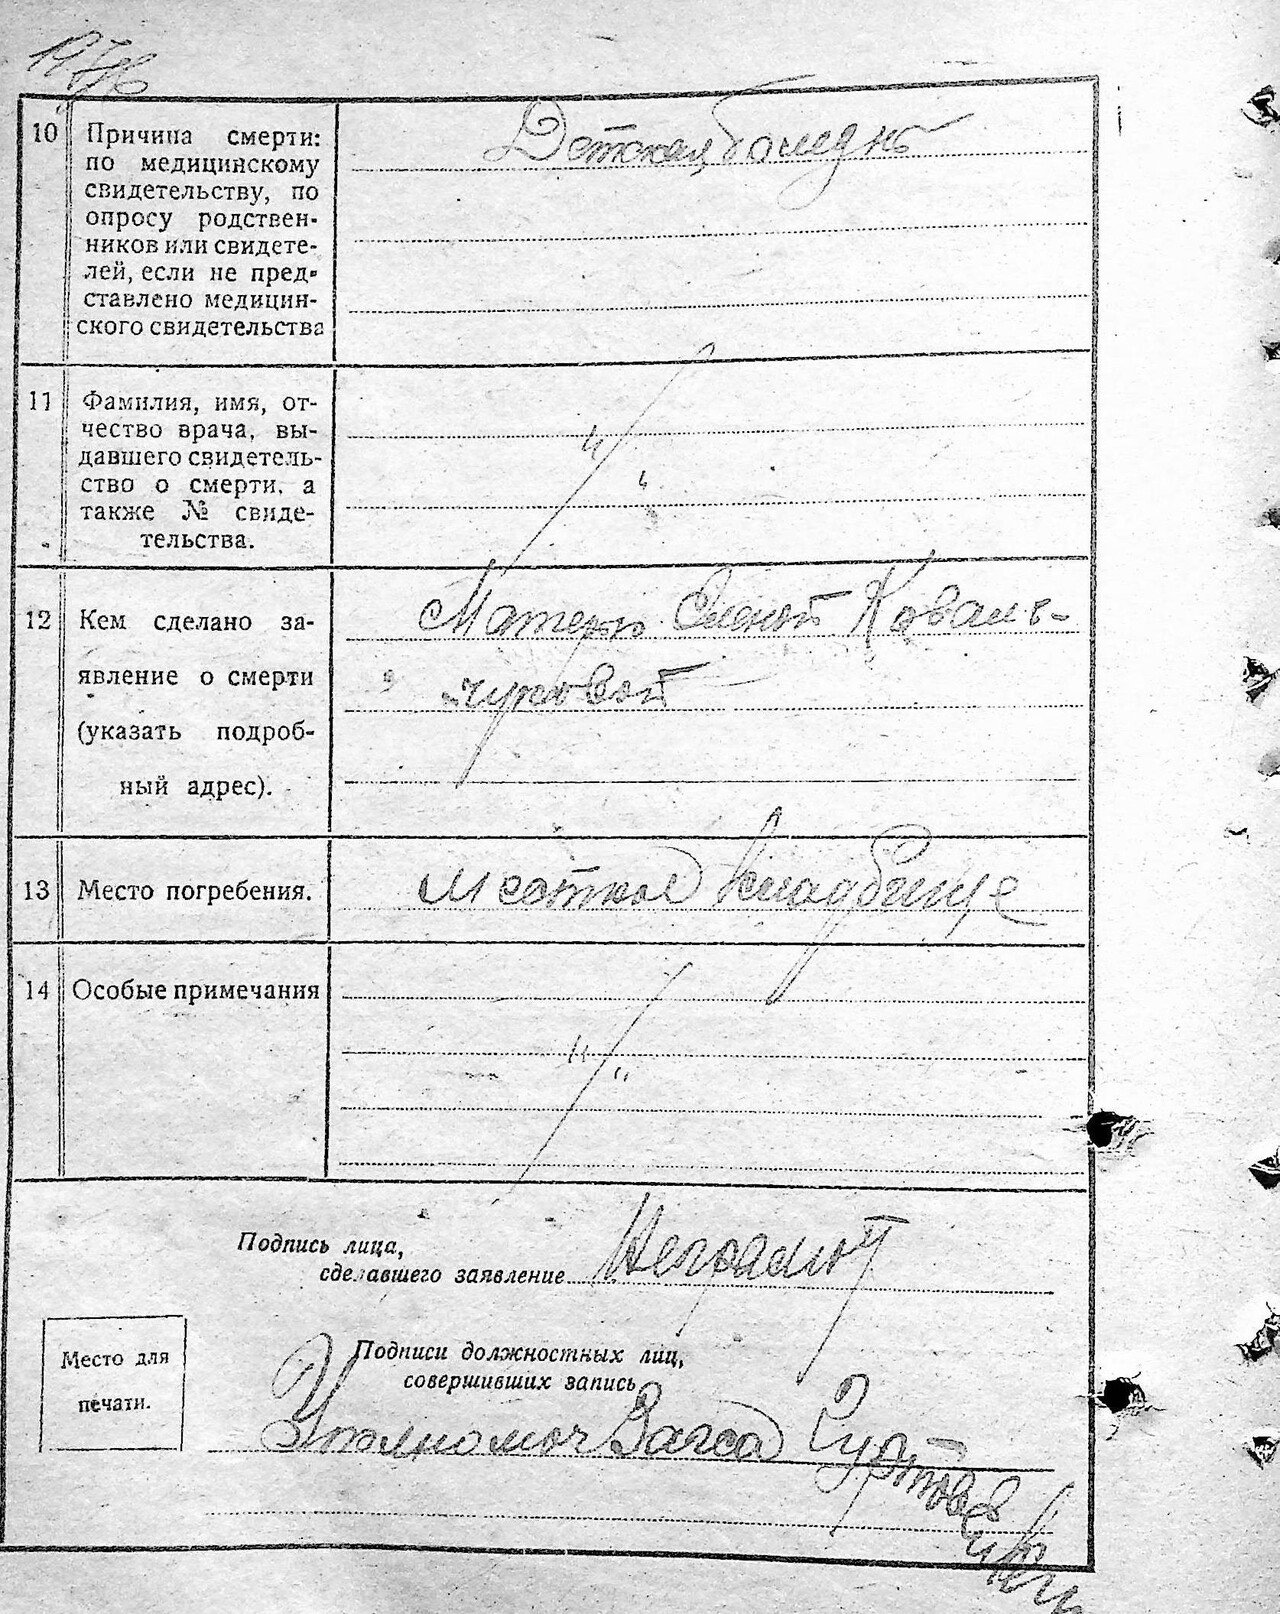 10 Причина смерти:
по медицинскому
свидетельству, по
опросу родствен-
ников или свидете-
лей, если не пред-
ставлено медицин-
ского свидетельства
Детская болезнь
11 Фамилия, имя, от-
чество врача, вы-
давшего свидетель-
ство о смерти, а
также № свиде-
тельства.
12 Кем сделано за-
явление о смерти
(указать подроб-
ный адрес).
Матерью Оленой Коваль-
чуковой
13 Место погребения.
местное кладбище
14 Особые примечания
Подпись лица,
сделавшего заявление
Неграмот
Место для
печати.
Подписи должностных лиц,
совершивших запись
Уполномоч Загса